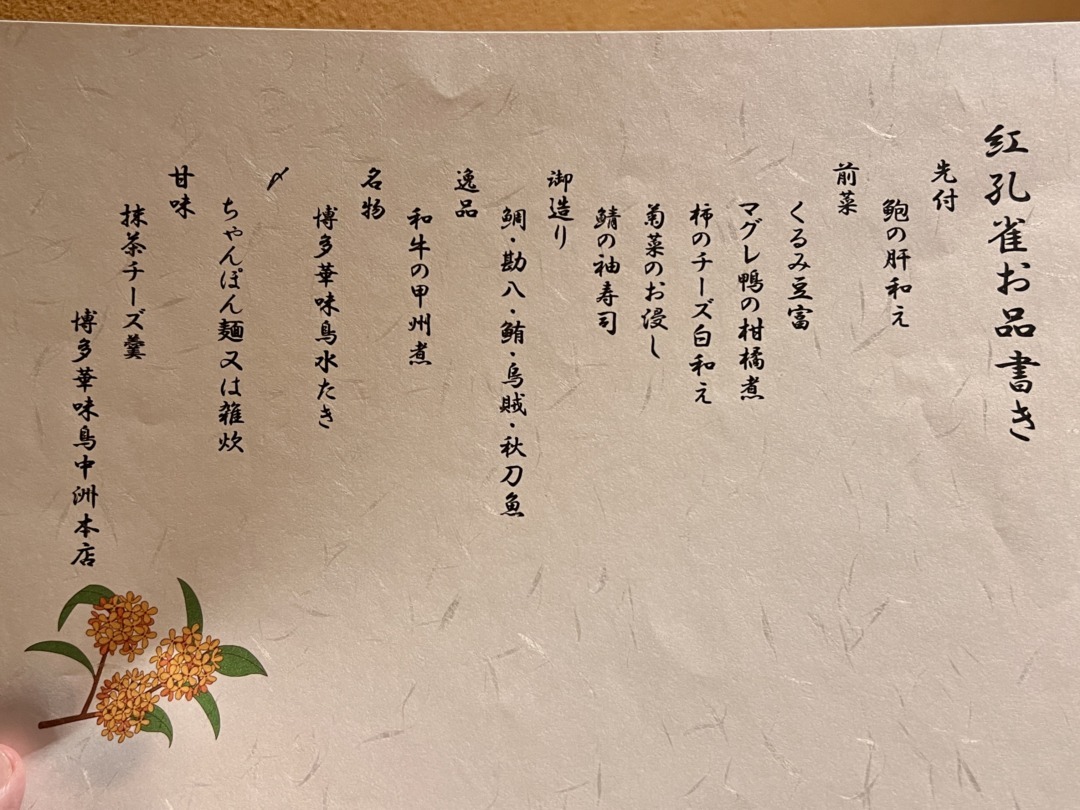 紅孔雀お品書き
先付
鮑の肝和え
前菜
くるみ豆富
マグレ鴨の柑橘煮
柿のチーズ白和え
菊菜のお浸し
鯖の袖寿司
御造り
鯛・勘八・鮪・烏賊・秋刀魚
逸品
和牛の甲州煮
名物
博多華味鳥水たき
〆
ちゃんぽん麺又は雑炊
甘味
抹茶チーズ羹
博多華味鳥中洲本店